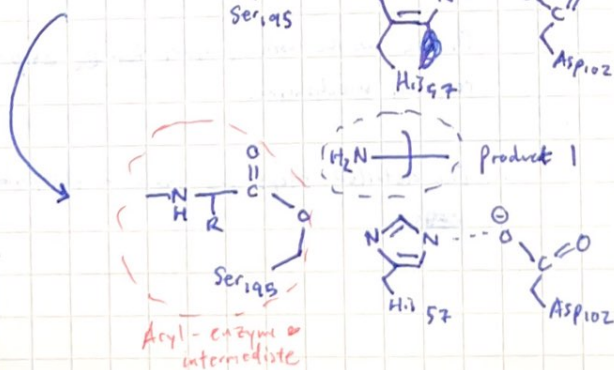 Ser195
N
C
His57
Asp102
O
H2N
Product 1
N
H
R
C
O
Ser195
N
N
His 57
⊖
O
C
O
Asp102
Acyl-enzyme
intermediate